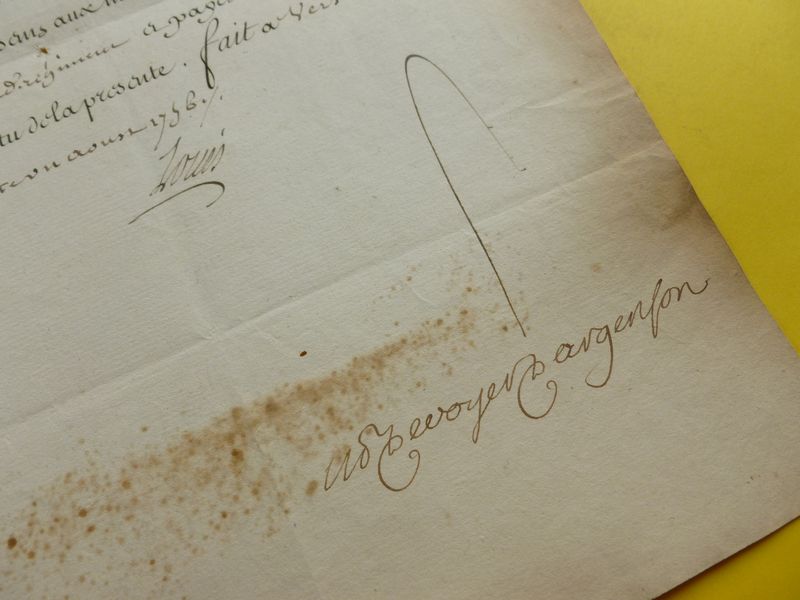 dans aux
d. regiment a pag
tu de la presente. fait a Vers
aoust 1756./.
Louis
M d Devoyer D argenson